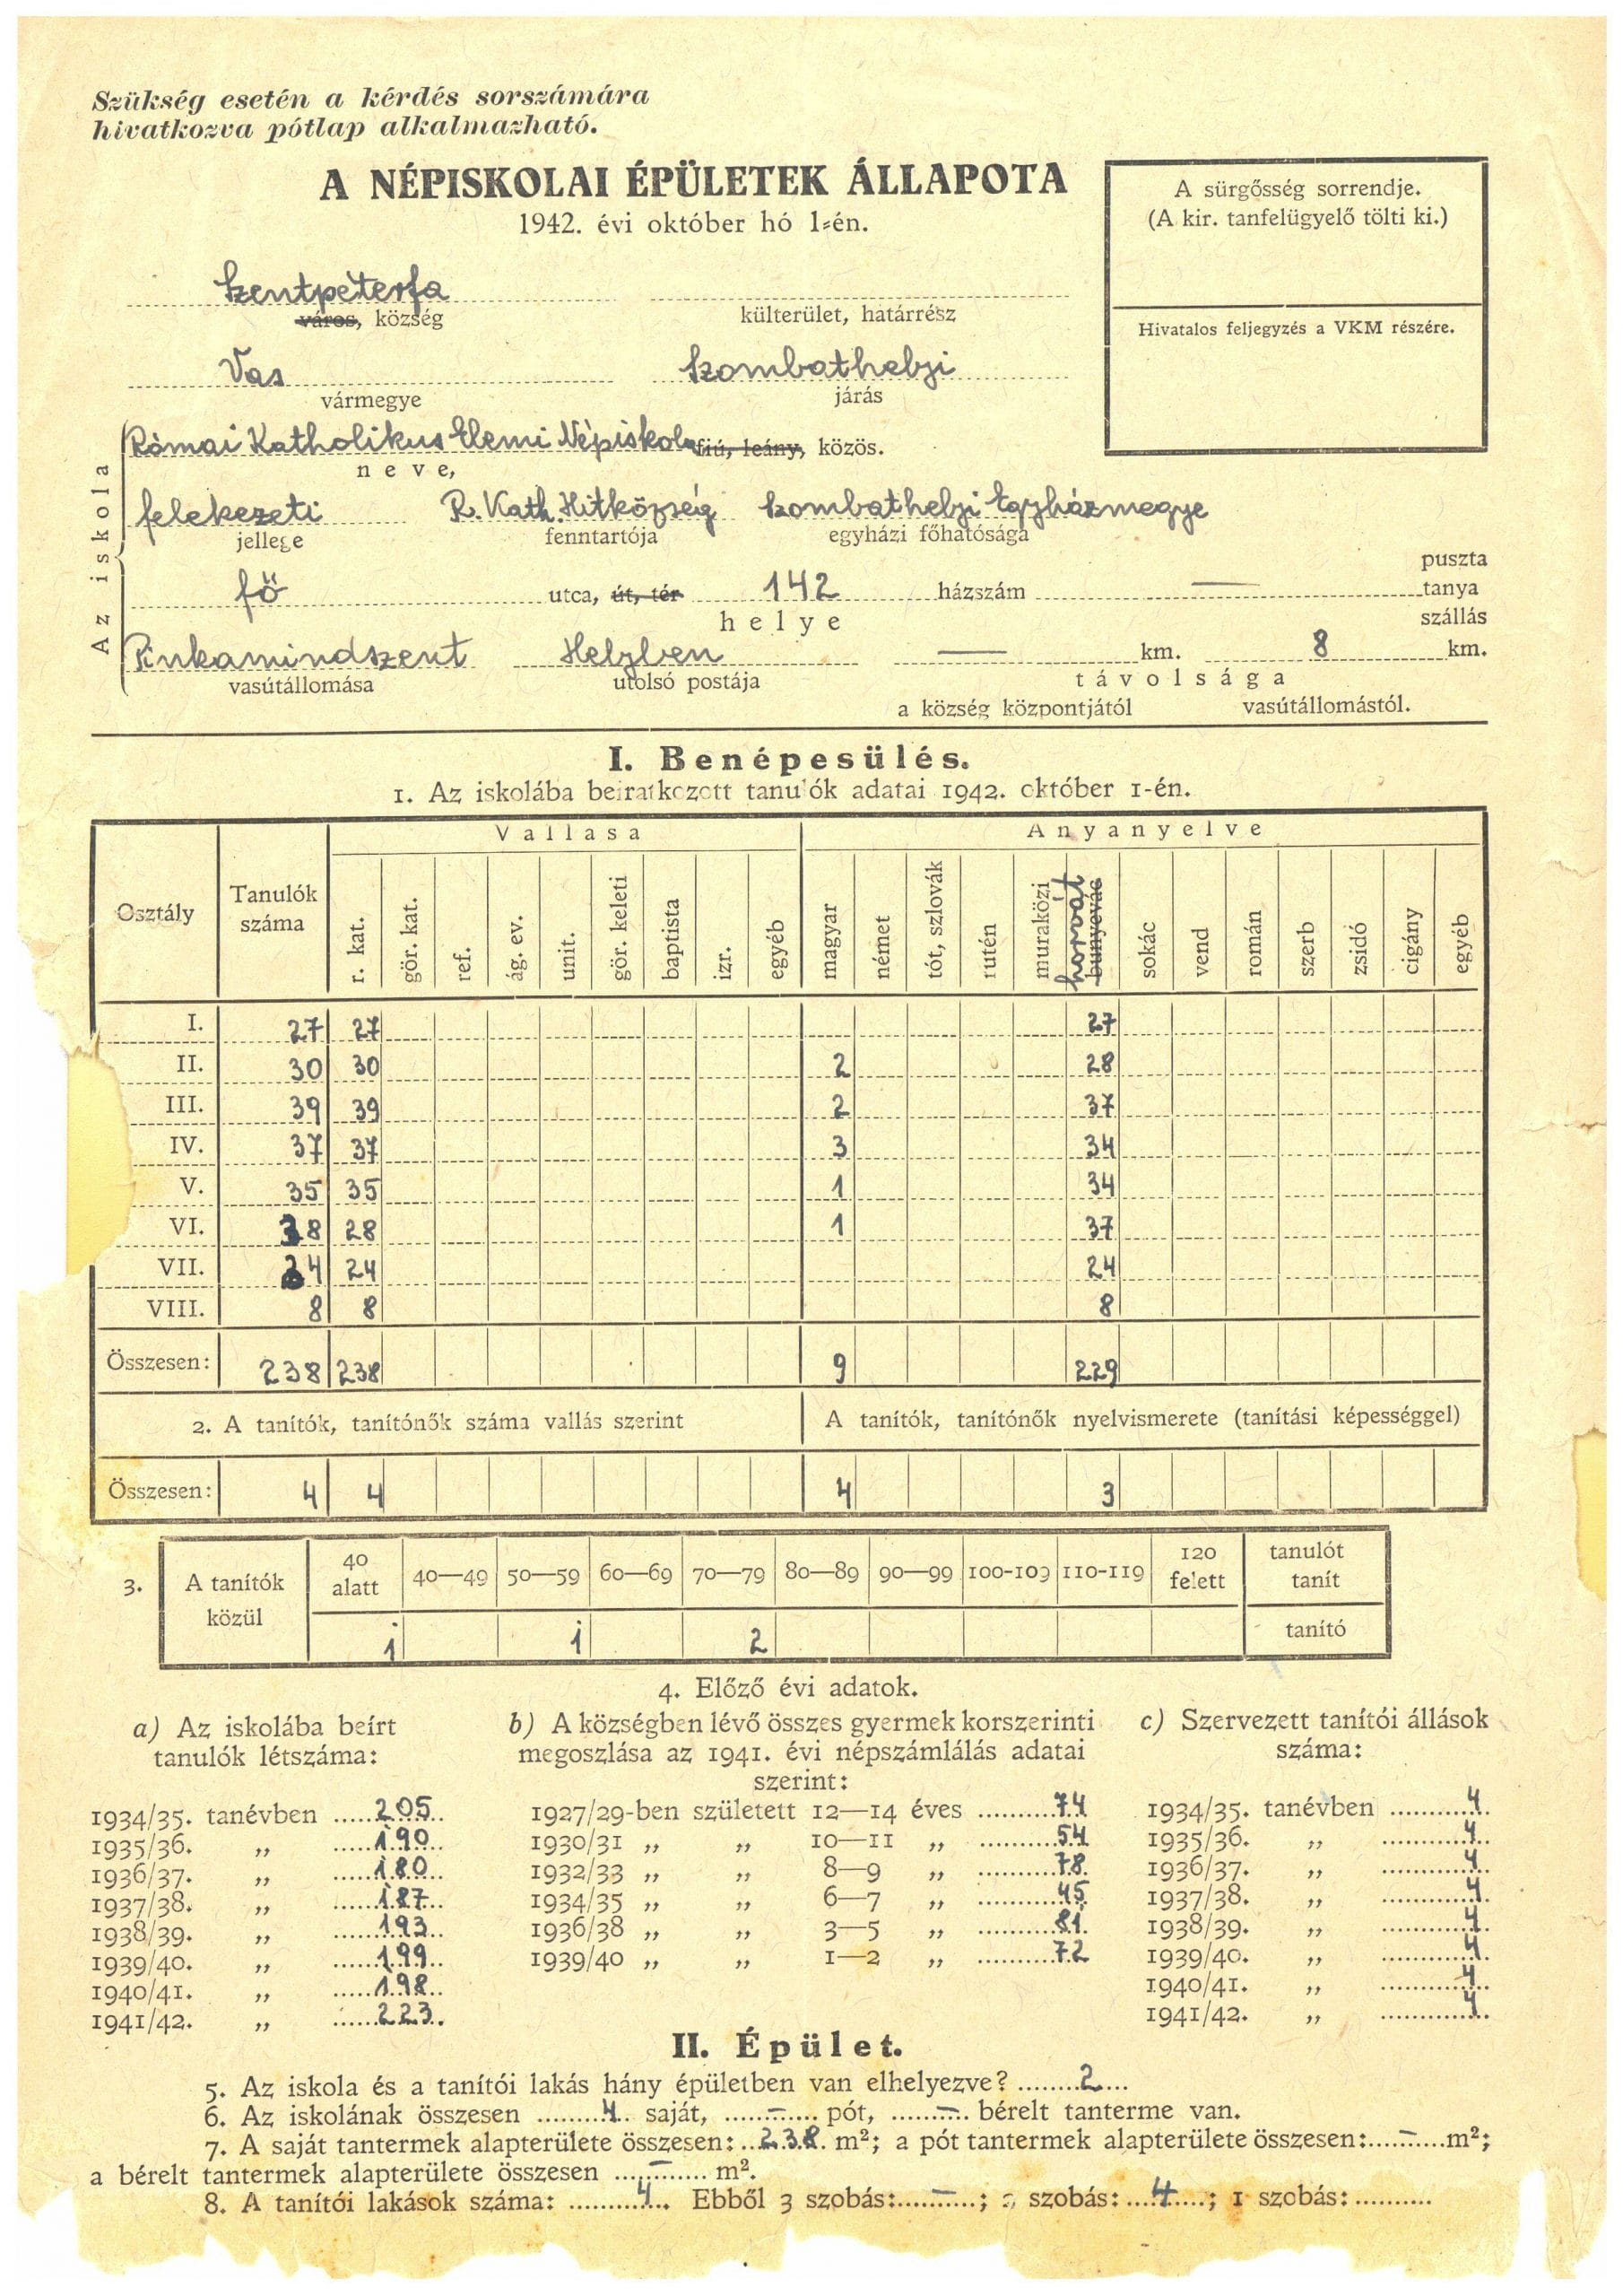 Szükség esetén a kérdés sorszámára
hivatkozva pótlap alkalmazható.
A NÉPISKOLAI ÉPÜLETEK ÁLLAPOTA
1942. évi október hó 1-én.
A sürgősség sorrendje.
(A kir. tanfelügyelő tölti ki.)
Hivatalos feljegyzés a VKM részére.
Szentpéterfa
város, község külterület, határrész
Vas Szombathelyi
vármegye járás
Az iskola
Római Katholikus Elemi Népiskola fiú, leány, közös.
neve,
felekezeti R. Kath. Hitközség Szombathelyi Egyházmegye
jellege fenntartója egyházi főhatósága
puszta
fő utca, út, tér 142 házszám — tanya
helye szállás
Pinkamindszent Helyben — km. 8 km.
vasútállomása utolsó postája távolsága
a község központjától vasútállomástól.
I. Benépesülés.
1. Az iskolába beiratkozott tanulók adatai 1942. október 1-én.
Osztály Tanulók száma Vallása Anyanyelve
r. kat. gör. kat. ref. ág. ev. unit. gör. keleti baptista izr. egyéb magyar német tót, szlovák rutén muraközi horvát bunyevác sokác vend román szerb zsidó cigány egyéb
I. 27 27 27
II. 30 30 2 28
III. 39 39 2 37
IV. 37 37 3 34
V. 35 35 1 34
VI. 38 28 1 37
VII. 24 24 24
VIII. 8 8 8
Összesen: 238 238 9 229
2. A tanítók, tanítónők száma vallás szerint A tanítók, tanítónők nyelvismerete (tanítási képességgel)
Összesen: 4 4 4 3
3. A tanítók közül 40 alatt 40—49 50—59 60—69 70—79 80—89 90—99 100-109 110-119 120 felett tanulót tanít
1 1 2 tanító
4. Előző évi adatok.
a) Az iskolába beírt b) A községben lévő összes gyermek korszerinti c) Szervezett tanítói állások
tanulók létszáma: megoszlása az 1941. évi népszámlálás adatai száma:
szerint:
1934/35. tanévben 205 1927/29-ben született 12—14 éves 74 1934/35. tanévben 4
1935/36. „ 190 1930/31 „ „ 10—11 „ 54 1935/36. „ 4
1936/37. „ 180 1932/33 „ „ 8—9 „ 78 1936/37. „ 4
1937/38. „ 187 1934/35 „ „ 6—7 „ 45 1937/38. „ 4
1938/39. „ 193 1936/38 „ „ 3—5 „ 81 1938/39. „ 4
1939/40. „ 199 1939/40 „ „ 1—2 „ 72 1939/40. „ 4
1940/41. „ 198 1940/41. „ 4
1941/42. „ 223 1941/42. „ 4
II. Épület.
5. Az iskola és a tanítói lakás hány épületben van elhelyezve? 2
6. Az iskolának összesen 4 saját, — pót, — bérelt tanterme van.
7. A saját tantermek alapterülete összesen: 238 m²; a pót tantermek alapterülete összesen: — m²;
a bérelt tantermek alapterülete összesen — m².
8. A tanítói lakások száma: 4. Ebből 3 szobás: —; 2 szobás: 4; 1 szobás: